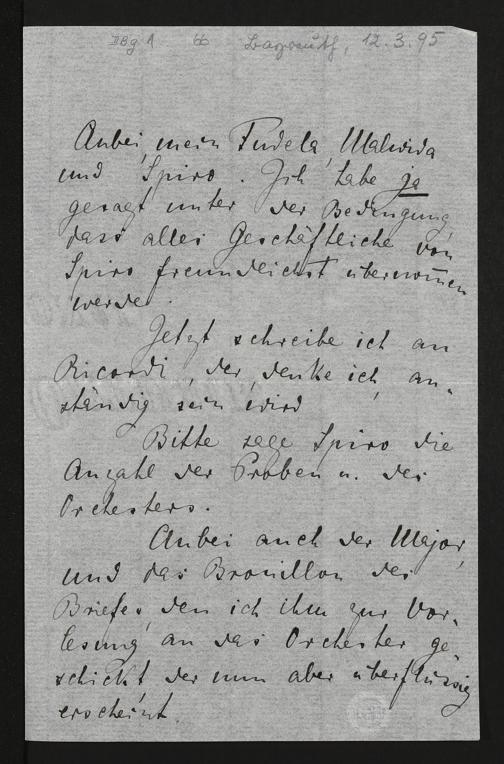 II Bg 1 66 Bayreuth, 12.3.95
Anbei, mein Fidela, Malwida
und Spiro. Ich habe ja
gesagt unter der Bedingung,
dass alles Geschäftliche von
Spiro freundlichst übernom̄en
werde.
Jetzt schreibe ich an
Ricordi, der, denke ich, an-
ständig sein wird
Bitte sage Spiro die
Anzahl der Proben u. des
Orchesters.
Anbei auch der Major,
und das Brouillon des
Briefes, den ich ihm zur Vor-
lesung an das Orchester ge-
schickt der nun aber überflüssig
erscheint.